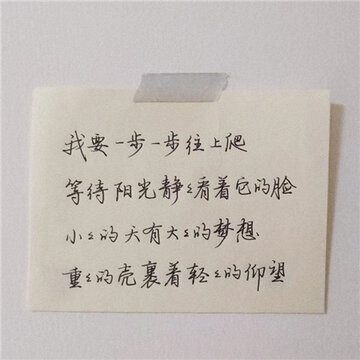 我要一步一步往上爬
等待阳光静々看着它的脸
小々的天有大々的梦想
重々的壳裹着轻々的仰望